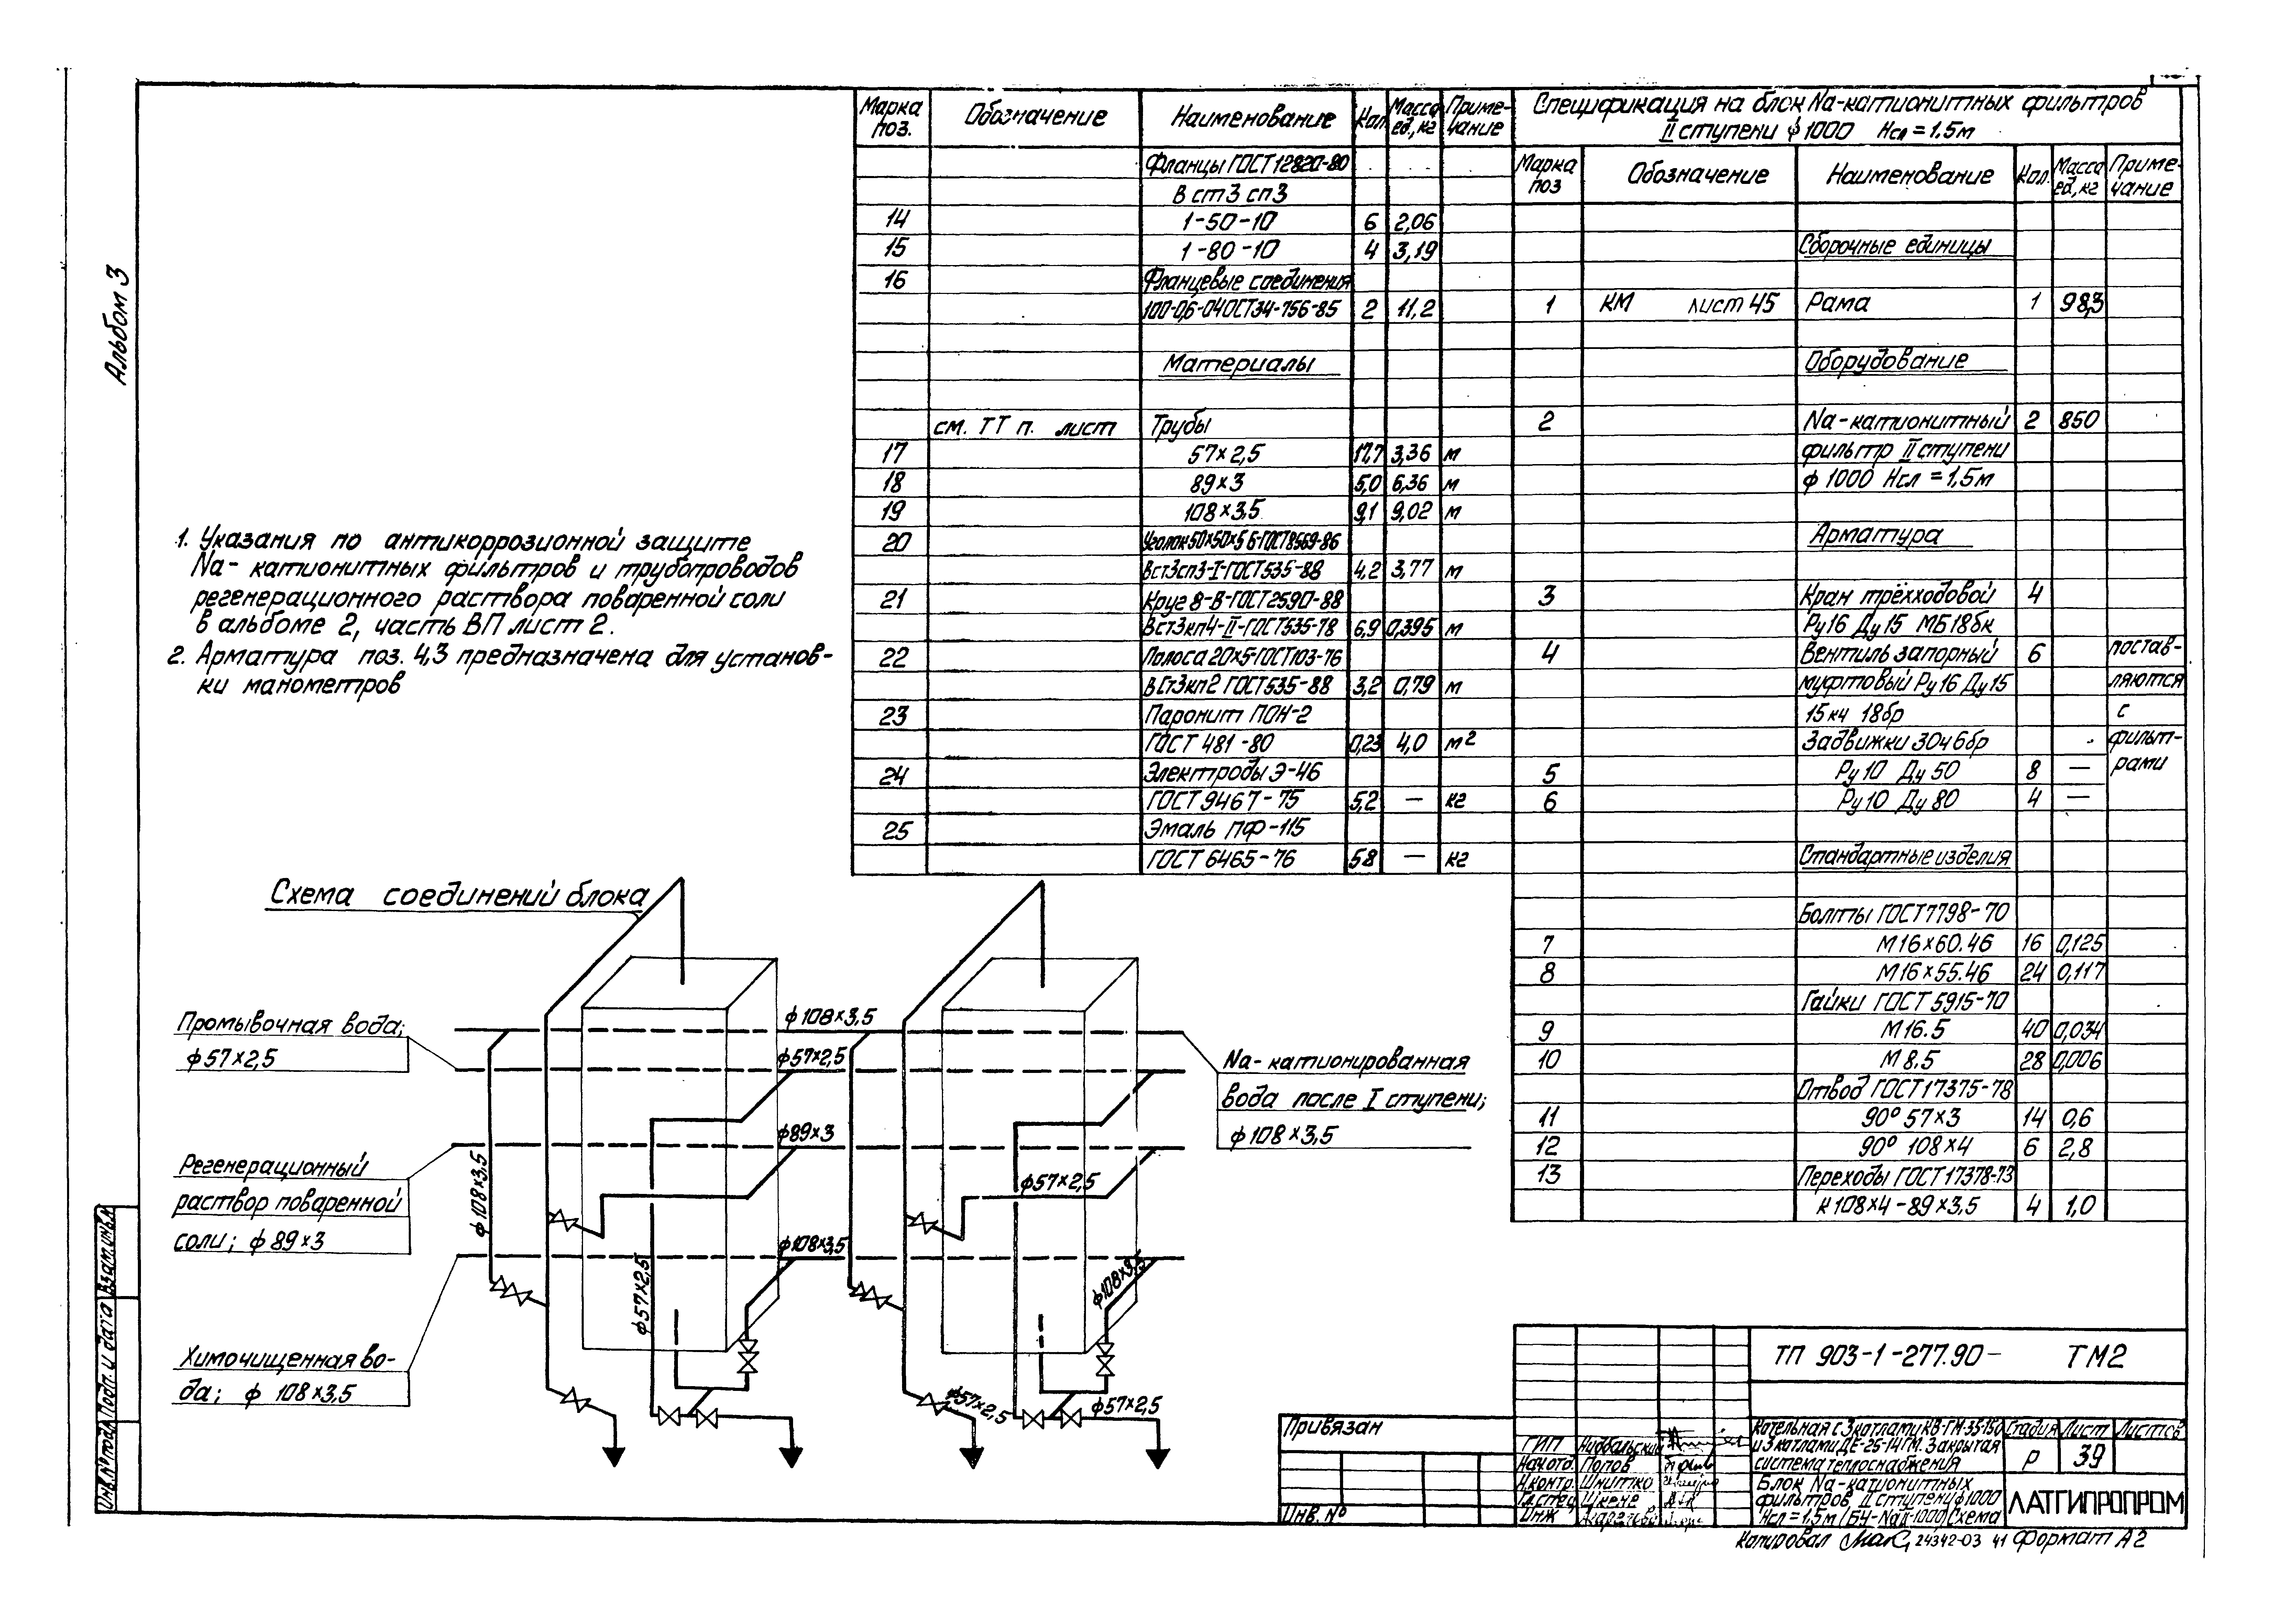 Альбом 3
Марка поз. Обозначение Наименование Кол Масса ед., кг Приме- чание
Фланцы ГОСТ 12820-80
В ст3 сп3
14 1-50-10 6 2,06
15 1-80-10 4 3,19
16 Фланцевые соединения
100-0,6-04 ОСТ34-756-85 2 11,2
Материалы
см. ТТ п. лист Трубы
17 57×2,5 17,7 3,36 м
18 89×3 5,0 6,36 м
19 108×3,5 9,1 9,02 м
20 Уголок 50×50×5 Б-ГОСТ8509-86
Вст3сп3-I-ГОСТ535-88 4,2 3,77 м
21 Круг 8-В-ГОСТ2590-88
Вст3кп4-II-ГОСТ535-78 6,9 0,395 м
22 Полоса 20×5 ГОСТ103-76
ВСт3кп2 ГОСТ535-88 3,2 0,79 м
23 Паронит ПОН-2
ГОСТ 481-80 0,23 4,0 м²
24 Электроды Э-46
ГОСТ 9467-75 5,2 — кг
25 Эмаль ПФ-115
ГОСТ 6465-76 58 — кг
Спецификация на блок Na-катионитных фильтров
II ступени ϕ 1000 Нсл = 1,5м
Марка поз Обозначение Наименование Кол. Масса ед., кг Приме- чание
Сборочные единицы
1 КМ лист 45 Рама 1 98,3
Оборудование
2 Na-катионитный 2 850
фильтр II ступени
ϕ 1000 Нсл = 1,5м
Арматура
3 Кран трёхходовой 4
Ру16 Ду15 МБ18бк
4 Вентиль запорный 6 постав-
муфтовый Ру16 Ду15 ляются
15кч 18бр с
Задвижки 30ч6бр фильт-
5 Ру10 Ду 50 8 — рами
6 Ру10 Ду 80 4 —
Стандартные изделия
Болты ГОСТ7798-70
7 М16×60.46 16 0,125
8 М16×55.46 24 0,117
Гайки ГОСТ 5915-70
9 М16.5 40 0,034
10 М8.5 28 0,006
Отвод ГОСТ17375-78
11 90° 57×3 14 0,6
12 90° 108×4 6 2,8
13 Переходы ГОСТ17378-73
К108×4-89×3,5 4 1,0
1. Указания по антикоррозионной защите
Na-катионитных фильтров и трубопроводов
регенерационного раствора поваренной соли
в альбоме 2, часть ВП лист 2.
2. Арматура поз. 4,3 предназначена для установ-
ки манометров
Схема соединений блока
Промывочная вода;
ϕ 57×2,5
Регенерационный
раствор поваренной
соли; ϕ 89×3
Химочищенная во-
да; ϕ 108×3,5
ϕ 108×3,5
ϕ57×2,5
ϕ89×3
ϕ108×3,5
ϕ108×3,5
ϕ57×2,5
ϕ57×2,5
ϕ108×3,5
ϕ57×2,5
ϕ57×2,5
Na-катионированная
вода после I ступени;
ϕ 108×3,5
Инв.№подл. Подп. и дата Взам.инв.№
Привязан
Инв. №
ГИП Нидбальский
Нач.отд. Попов
Н.контр. Шнитко
Гл.спец. Шкене
Инж
ТП 903-1-277.90- ТМ2
Котельная с 3 котлами КВ-ГМ-35-150
и 3 котлами ДЕ-25-14ГМ. Закрытая
система теплоснабжения
Стадия Лист Листов
Р 39
Блок Na-катионитных
фильтров II ступени ϕ1000
Нсл = 1,5м (БЧ-NaII-1000) Схема
ЛАТГИПРОПРОМ
Копировал 24342-03 41 Формат А2